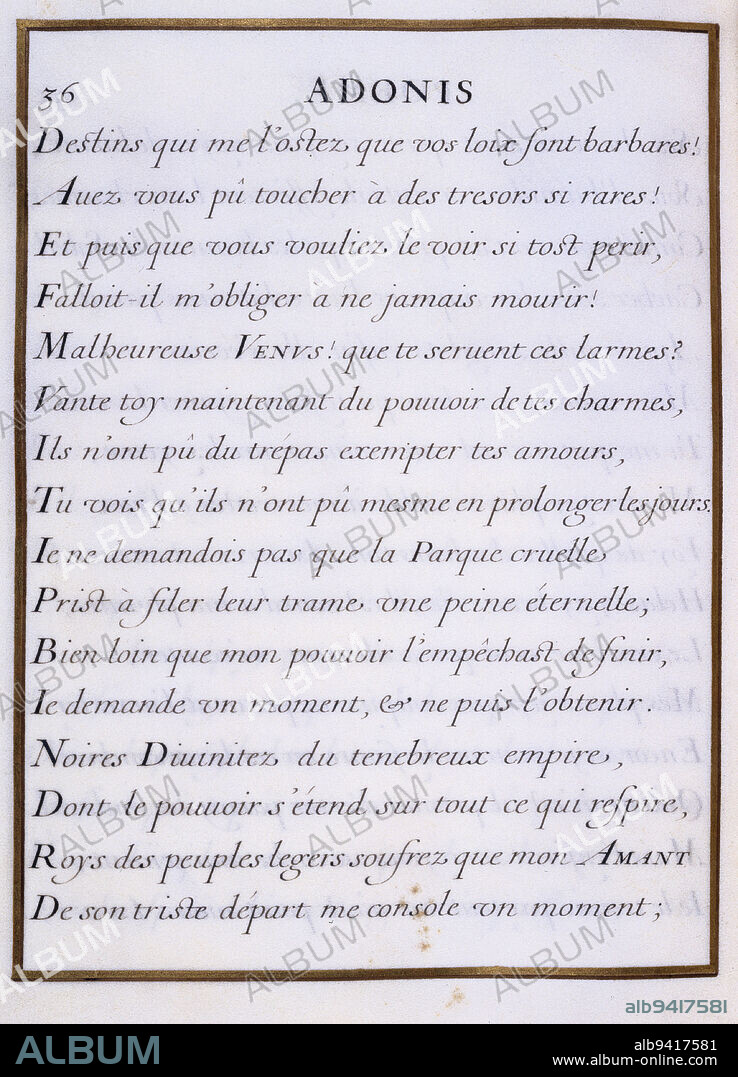 36 ADONIS
Destins qui me l'ostez que vos loix sont barbares!
Auez vous pû toucher à des tresors si rares!
Et puis que vous vouliez le voir si tost perir,
Falloit-il m'obliger à ne jamais mourir!
Malheureuse VENVS! que te seruent ces larmes?
Vante toy maintenant du pouuoir de tes charmes,
Ils n'ont pû du trépas exempter tes amours,
Tu vois qu'ils n'ont pû mesme en prolonger les jours.
Ie ne demandois pas que la Parque cruelle
Prist à filer leur trame vne peine éternelle;
Bien loin que mon pouuoir l'empêchast de finir,
Ie demande vn moment, & ne puis l'obtenir.
Noires Diuinitez du tenebreux empire,
Dont le pouuoir s'étend sur tout ce qui respire,
Roys des peuples legers soufrez que mon AMANT
De son triste départ me console vn moment;
alb9417581
ALBUM
alb9417581
www.album-online.com